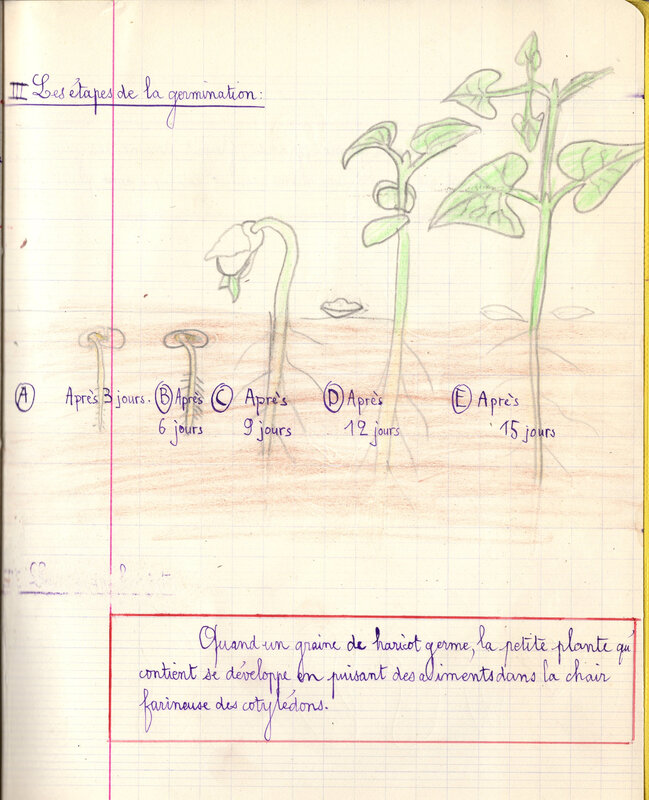 III Les étapes de la germination:
A Après 3 jours. B Après 6 jours C Après 9 jours D Après 12 jours E Après 15 jours
Quand un graine de haricot germe, la petite plante qu'
contient se développe en puisant des aliments dans la chair
farineuse des cotylédons.